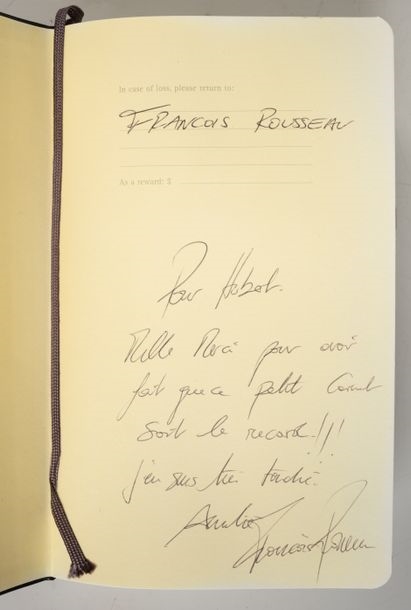 In case of loss, please return to:
FRANCOIS ROUSSEAU
As a reward: $
Pour Hubert.
Mille Merci pour avoir
fait que ce petit Carnet
soit le record!!!
j'en suis très touché.
Amitié
François Rousseau